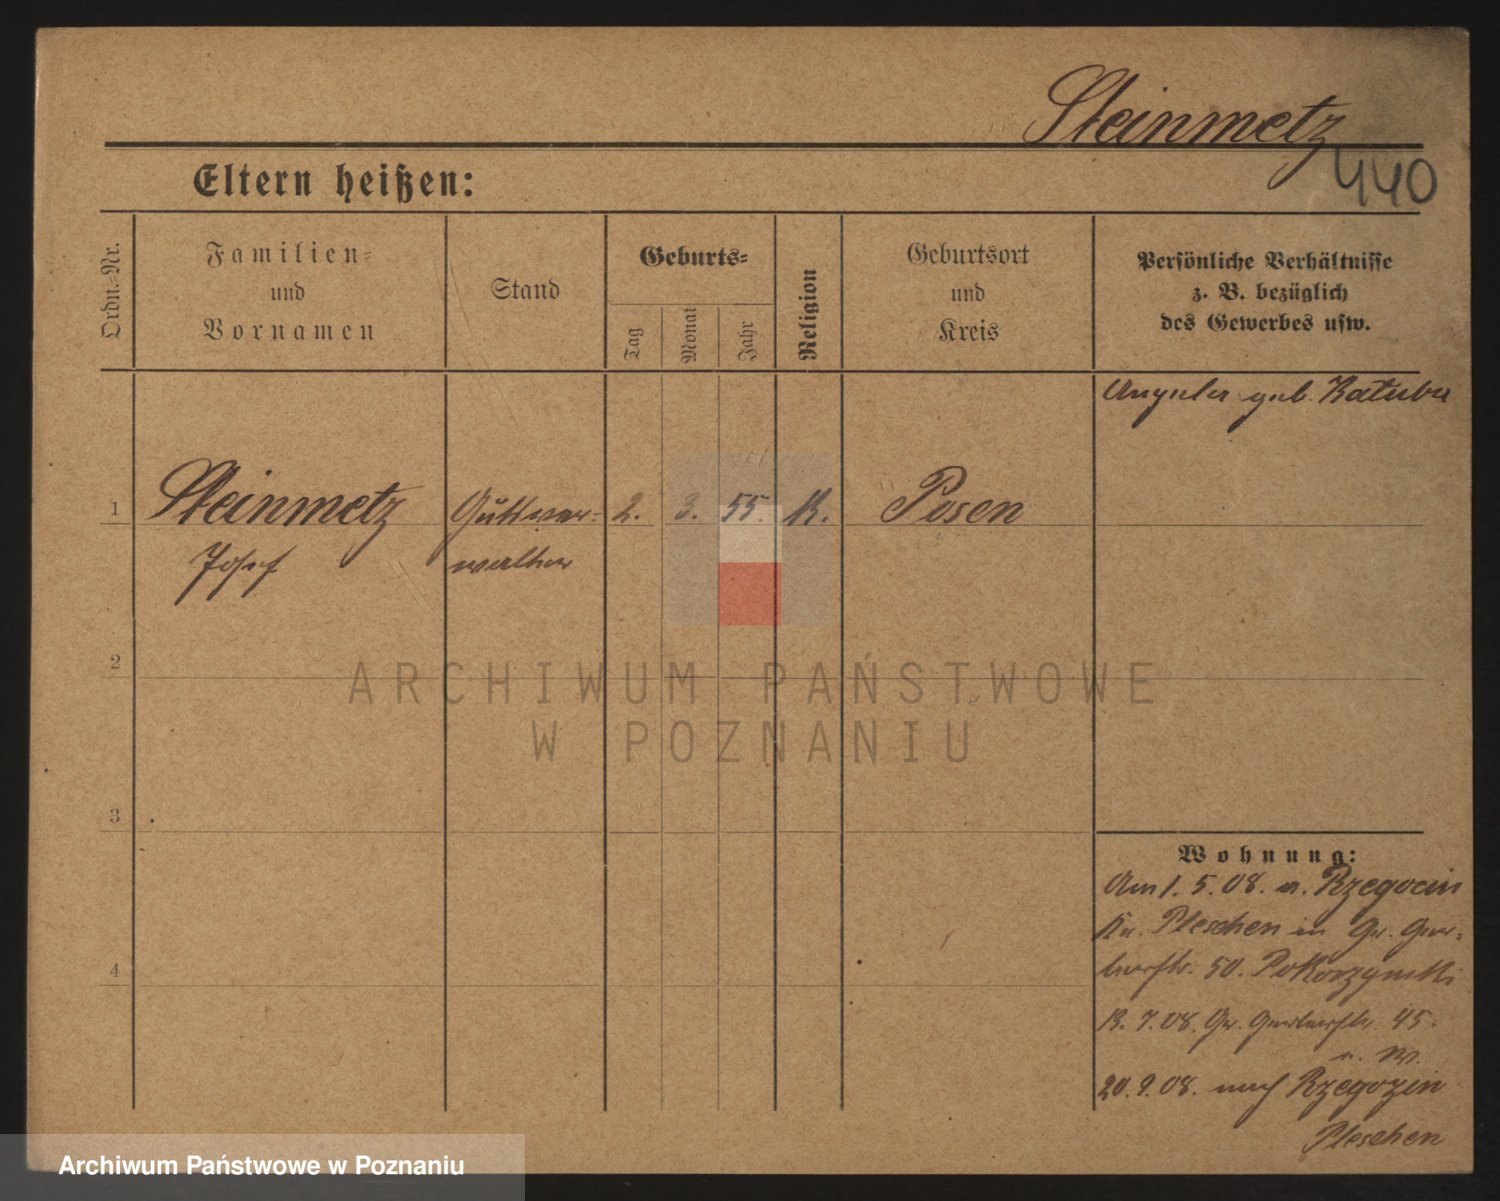 Steinmetz
440
Eltern heißen:
Ordn.-Nr.
Familien-
und
Vornamen
Stand
Geburts-
Tag
Monat
Jahr
Religion
Geburtsort
und
Kreis
Persönliche Verhältnisse
z. B. bezüglich
des Gewerbes usw.
geb.
1 Steinmetz 2. 3. 55. K. Posen
Josef walter
2
3
4
ARCHIWUM PAŃSTWOWE
W POZNANIU
Wohnung:
Am 1. 5. 08. a. Rzegocin
Kr. Pleschen in Gr. Ger-
berstr. 50. Pokorzynski
7. 08. Gr. Gerberstr. 45.
20. 9. 08. nach Rzegozin
Pleschen
Archiwum Państwowe w Poznaniu